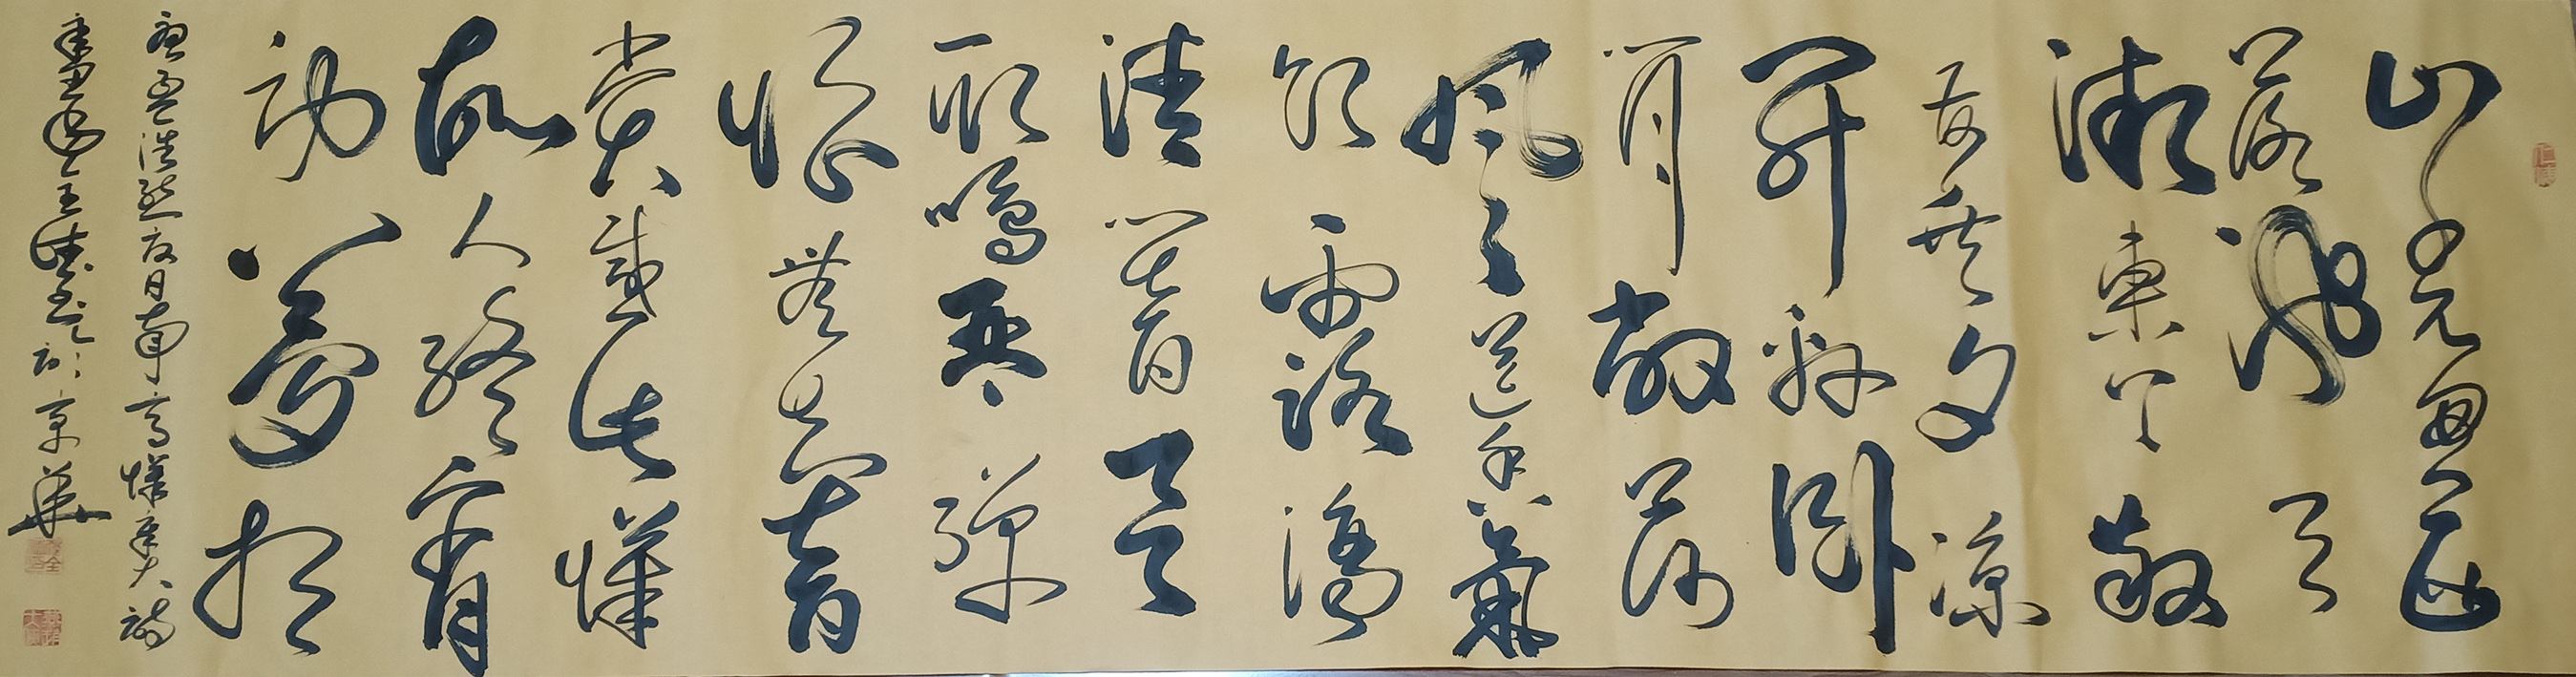 山光忽西
落池月
漸東上散
髮乘夕涼
開軒臥
閒敞荷
風送香氣
竹露滴
清響欲
取鳴琴彈
恨無知音
賞感此懷
故人終宵
勞夢想
唐孟浩然夏日南亭懷辛大詩
王書於京華